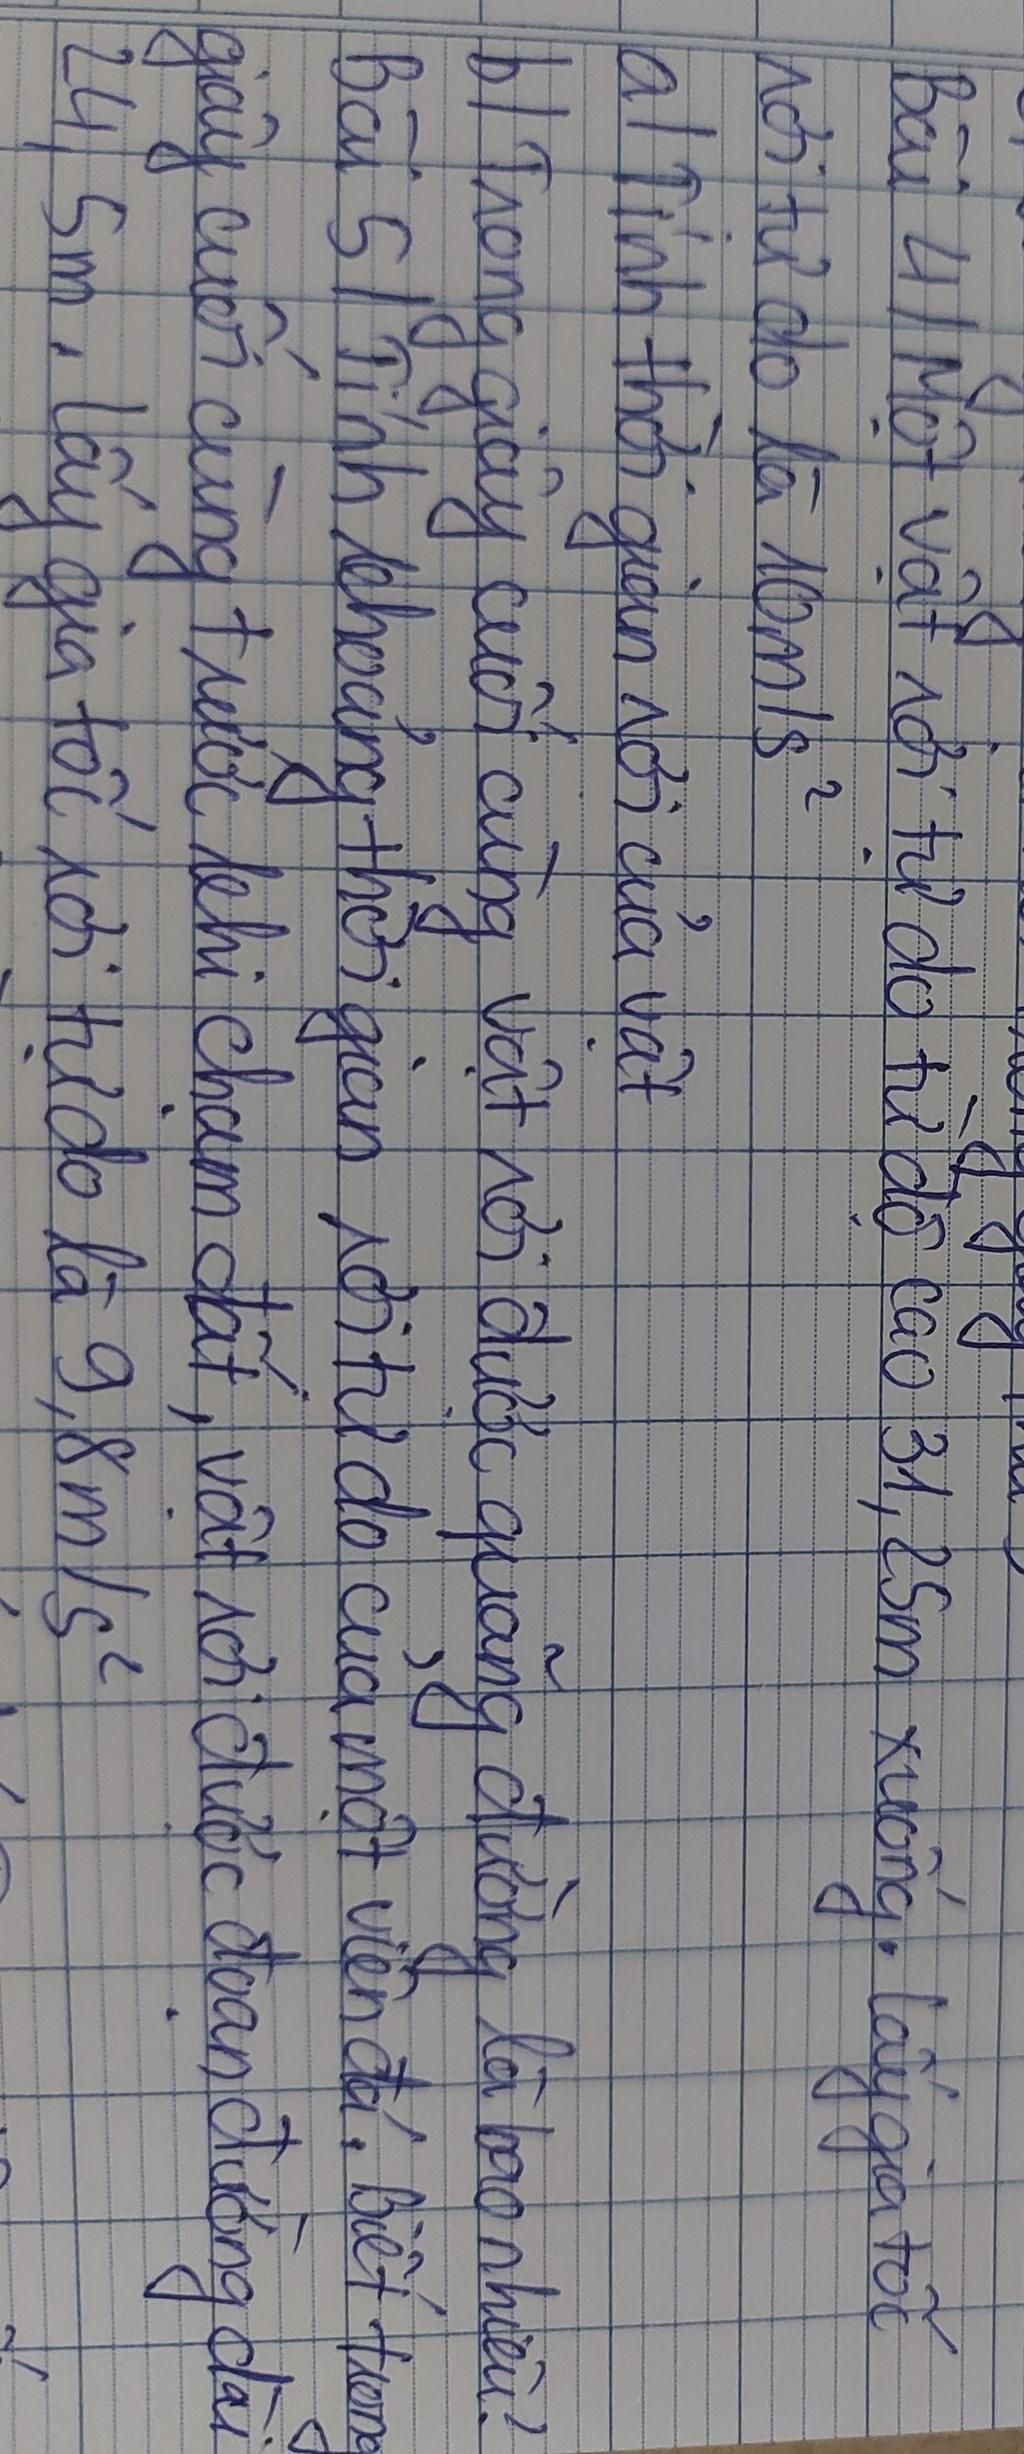 Bài 4/ Một vật rơi tự do từ độ cao 31,25m xuống. Lấy gia tốc
rơi tự do là 10m/s²
a/ Tính thời gian rơi của vật
b/ Trong giây cuối cùng vật rơi được quãng đường là bao nhiêu?
Bài 5/ Tính khoảng thời gian rơi tự do của một viên đá. Biết trong
giây cuối cùng trước khi chạm đất, vật rơi được đoạn đường dài
24,5m. Lấy gia tốc rơi tự do là 9,8m/s²